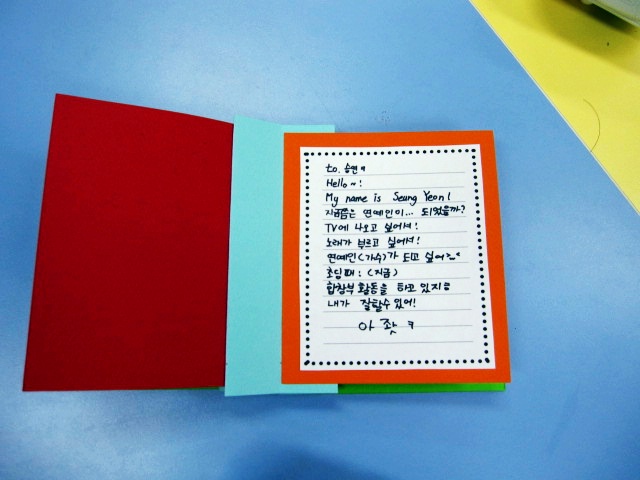 to. 승연ㅋ
Hello~!
My name is Seung Yeon!
지금쯤은 연예인이... 되었을까?
TV에 나오고 싶어셔!
노래가 부르고 싶어셔!
연예인(가수)가 되고 싶어
초딩때: (지금)
합창부 활동을 하고 있지ㅎ
내가 잘할수 있어!
아 좟 ㅋ